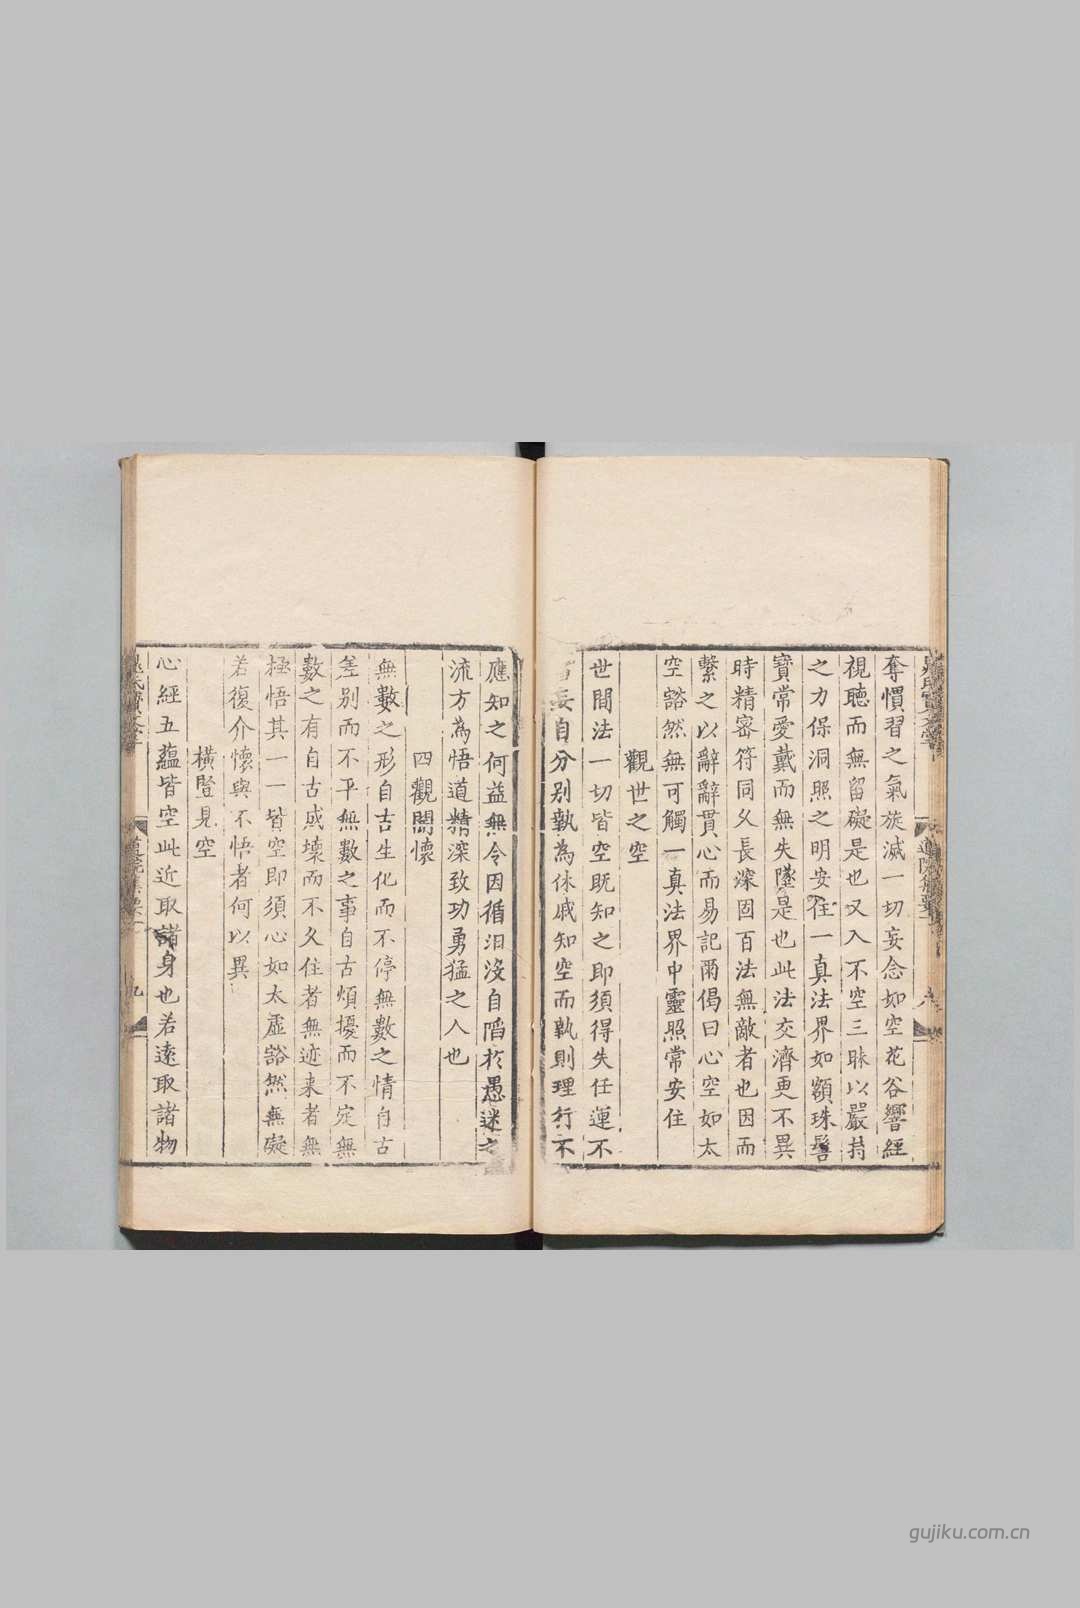 奪慣習之氣旋滅一切妄念如空花谷響經
視聽而無留礙是也又入不空三昧以嚴持
之力保洞照之明安住一真法界如額珠髻
寶常愛戴而無失墜是也此法交濟更不異
時精審符同久長深固百法無敵者也因而
繫之以辭辭貫心而易記爾偈曰心空如太
空豁然無可觸一真法界中靈照常安住
觀世之空
世間法一切皆空既知之即須得失任運不
妄自分別執為休戚知空而執則理行不
應知之何益無令因循汨沒自陷於愚迷之
流方為悟道精深致功勇猛之人也
四觀開懷
無數之形自古生化而不停無數之情自古
差別而不平無數之事自古煩擾而不定無
數之有自古成壞而不久住者無迹来者無
極悟其一一皆空即須心如太虛豁然無礙
若復介懷與不悟者何以異
橫豎見空
心經五蘊皆空此近取諸身也若遠取諸物
晁氏寶文堂
道院集要
九
gujiku.com.cn